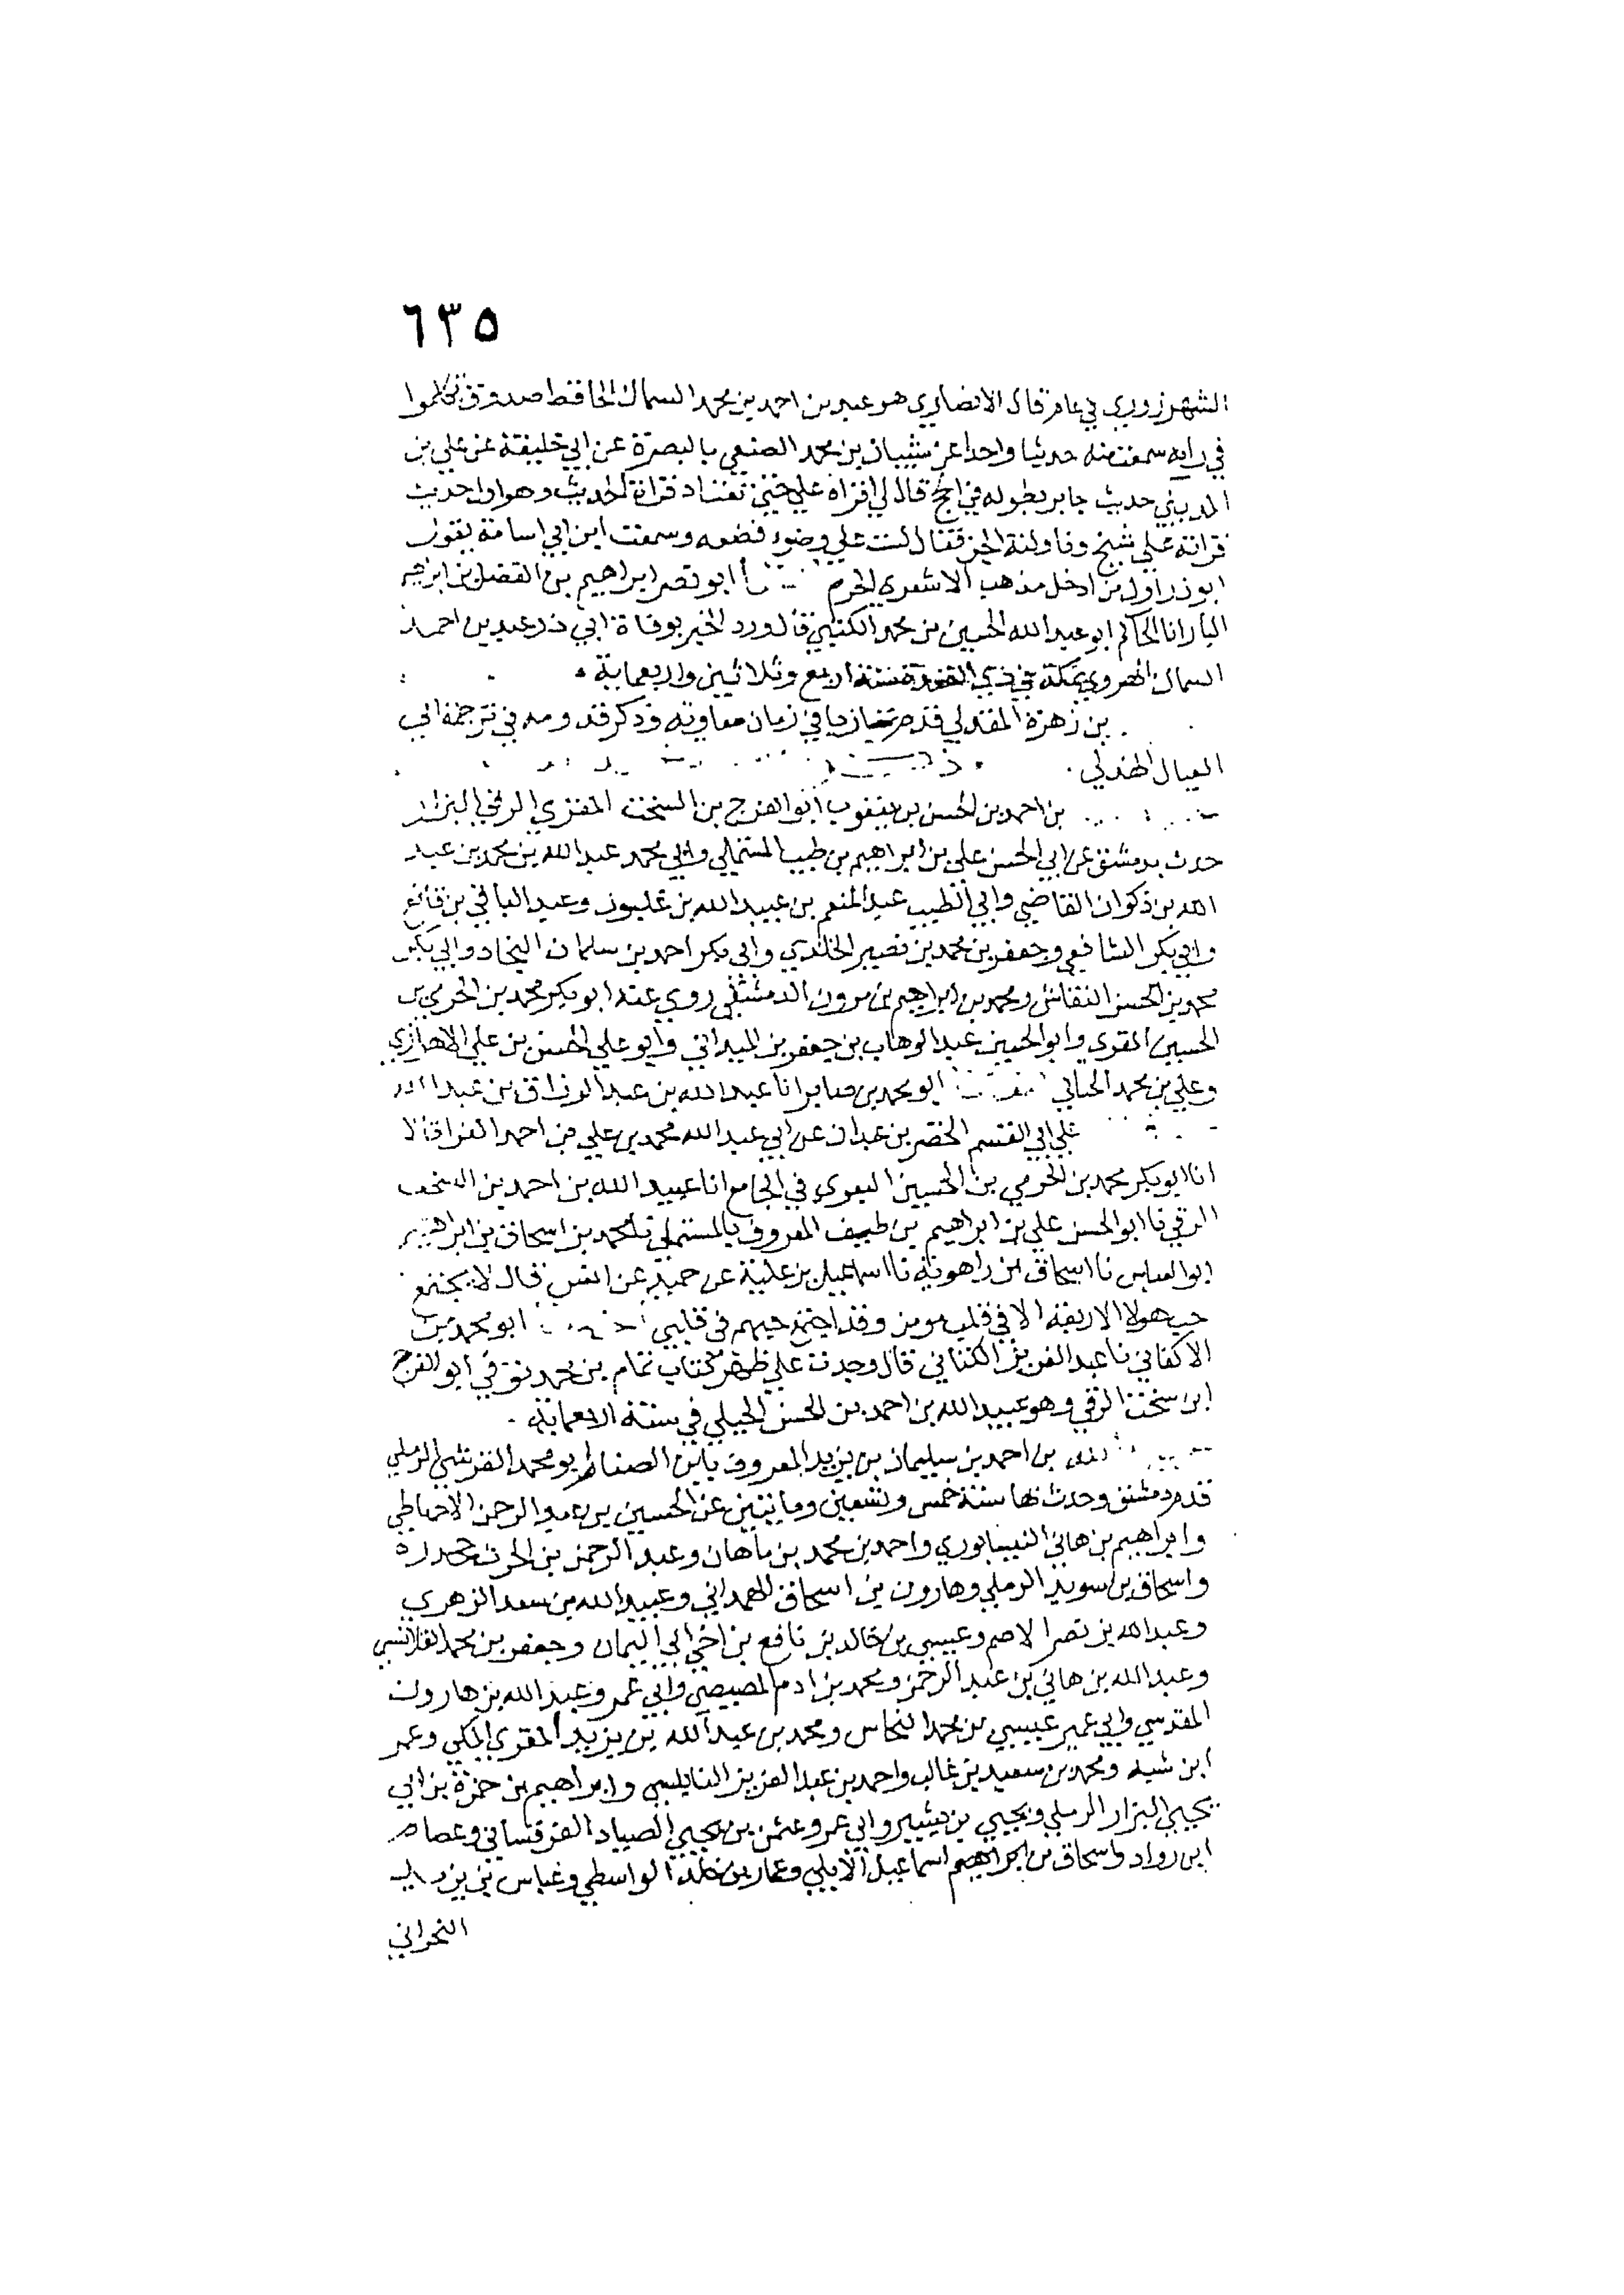 ٦٣٥
الشهرزوري في عامر قال الانصاري هو عبد بن احمد بن محمد السماك الحافظ صدوق تكلموا
في رايه سمعت منه حديثا واحدا عن شيبان بن محمد الضبعي بالبصرة عن ابي خليفة عن علي بن
المديني حديث جابر بطوله في الحج قال لي اقراه علي حتى تعتاد قراة الحديث وهو اول حديث
قراته علي شيخ وناولته الجز فقال لست علي وضوء فضعه وسمعت ابن ابي اسامة يقول
ابو ذر اول من ادخل مذهب الاشعري الحرم ابو نصر ابراهيم بن الفضل بن ابراهيم
البار انا الحاكم ابو عبد الله الحسين بن محمد الكتبي قال ورد الخبر بوفاة ابي ذر عبد بن احمد
السماك الهروي بمكة في ذي القعدة سنة اربع وثلاثين واربعماية
بن زهرة في زمان معاوية وذكر قدومه في ترجمة ابي
العيال الهذلي
بن احمد بن الحسن بن يعقوب ابو الفرج بن السخت المقري الرقي البزار
حدث بدمشق عن ابي الحسن علي بن ابراهيم بن طيب المستملي وابي محمد عبد الله بن محمد بن عبد
الله بن ذكوان القاضي وابي الطيب عبد المنعم بن عبيد الله بن غلبون وعبد الباقي بن قانع
وابي بكر الشافعي وجعفر بن محمد بن نصير الخلدي وابي بكر احمد بن سلمان النجاد وابي بكر
محمد بن الحسن النقاش ومحمد بن ابراهيم بن مرون الدمشقي روي عنه ابو بكر محمد بن الحرمي بن
الحسين المقري وابو الحسين عبد الوهاب بن جعفر بن الميداني وابو علي الحسن بن علي الاهوازي
وعلي بن محمد الحنائي ابو محمد بن صابر انا عبد الله بن عبد الرزاق بن عبد الله
علي ابي القسم الخضر بن عبدان عن ابي عبد الله محمد بن علي بن احمد الفرا قالا
انا ابو بكر محمد بن الحرمي بن الحسين المقري في الجامع انا عبيد الله بن احمد بن السخت
الرقي نا ابو الحسن علي بن ابراهيم بن طيب المعروف بالمستملي نا محمد بن اسحاق بن ابراهيم
ابو العباس نا اسحاق بن راهويه نا اسماعيل بن علية عن حميد عن انس قال لا يجتمع
حب هولا الاربعة الا في قلب مومن وقد اجتمع حبهم في قلبي ابو محمد بن
الاكفاني نا عبد العزيز الكتاني قال وجدت علي ظهر كتاب تمام بن محمد توفي ابو الفرج
ابن سخت الرقي وهو عبيد الله بن احمد بن الحسن الجبلي في سنة اربعماية
بن احمد بن سليمان بن يزيد المعروف بابن الصنام ابو محمد القرشي الرملي
قدم دمشق وحدث بها سنة خمس وتسعين ومايتين عن الحسين بن عبد الرحمن الاحتياطي
وابراهيم بن هاني النيسابوري واحمد بن محمد بن ماهان وعبد الرحمن بن الحرث جحدرة
واسحاق بن سويد الرملي وهارون بن اسحاق الهمداني وعبيد الله بن سعد الزهري
وعبد الله بن نصر الاصم وعيسي بن خالد بن نافع بن اخي ابي اليمان وجعفر بن محمد القلانسي
وعبد الله بن هاني بن عبد الرحمن ومحمد بن ادم المصيصي وابي عمر وعبد الله بن هارون
المقدسي وابي عمير عيسي بن محمد النحاس ومحمد بن عبد الله بن يزيد المقري المكي وعمر
ابن شبه ومحمد بن سعيد بن غالب واحمد بن عبد العزيز النابلسي وابراهيم بن حمزة بن ابي
يحيي البزار الرملي ويحيي بن بشير وابي عمرو عثمن بن يحيي الصياد القرقساني وعصام
ابن رواد واسحاق بن ابراهيم اسماعيل الايلي وعمار بن خلد الواسطي وعباس بن يزيد
النحراني